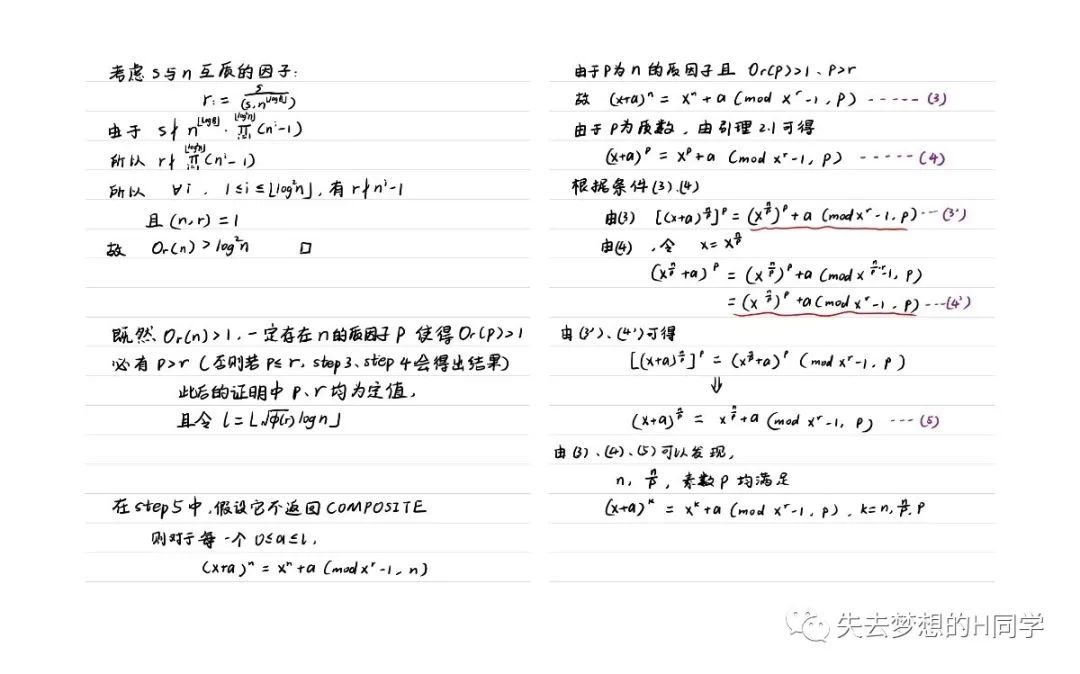 考虑 s与n 互质的因子:
r := s/(s, n^⌊log B⌋)
由于 s∤ n^⌊log B⌋ · ∏_{i=1}^{⌊log²n⌋} (nⁱ-1)
所以 r∤ ∏_{i=1}^{⌊log²n⌋} (nⁱ-1)
所以 ∀i , 1≤i≤⌊log²n⌋, 有 r∤nⁱ-1
且 (n,r) = 1
故 Or(n) > log²n □
既然 Or(n)>1, 一定存在 n的质因子 p 使得 Or(p)>1
必有 p>r (否则若 p≤r, step3、step4会得出结果)
此后的证明中 p、r 均为定值,
且令 l = ⌊√φ(r) log n⌋
在 step5中,假设它不返回 COMPOSITE
则对于每一个 0≤a≤l,
(x+a)ⁿ = xⁿ+a (mod xʳ-1, n)
由于p为n的质因子且 Or(p)>1、p>r
故 (x+a)ⁿ = xⁿ+a (mod xʳ-1, p) ----- (3)
由于p为质数, 由引理 2.1 可得
(x+a)ᵖ = xᵖ+a (mod xʳ-1, p) ----- (4)
根据条件(3)、(4)
由(3) [(x+a)^{n/p}]ᵖ = (x^{n/p})ᵖ+a (mod xʳ-1, p) --- (3')
由(4) , 令 x = x^{n/p}
(x^{n/p}+a)ᵖ = (x^{n/p})ᵖ+a (mod x^{n/p·r}-1, p)
= (x^{n/p})ᵖ+a (mod xʳ-1, p) --- (4')
由(3')、(4')可得
[(x+a)^{n/p}]ᵖ = (x^{n/p}+a)ᵖ (mod xʳ-1, p)
⇓
(x+a)^{n/p} = x^{n/p}+a (mod xʳ-1, p) --- (5)
由(3)、(4)、(5)可以发现,
n, n/p, 素数p 均满足
(x+a)ᵏ = xᵏ+a (mod xʳ-1, p), k=n, n/p, p
失去梦想的H同学